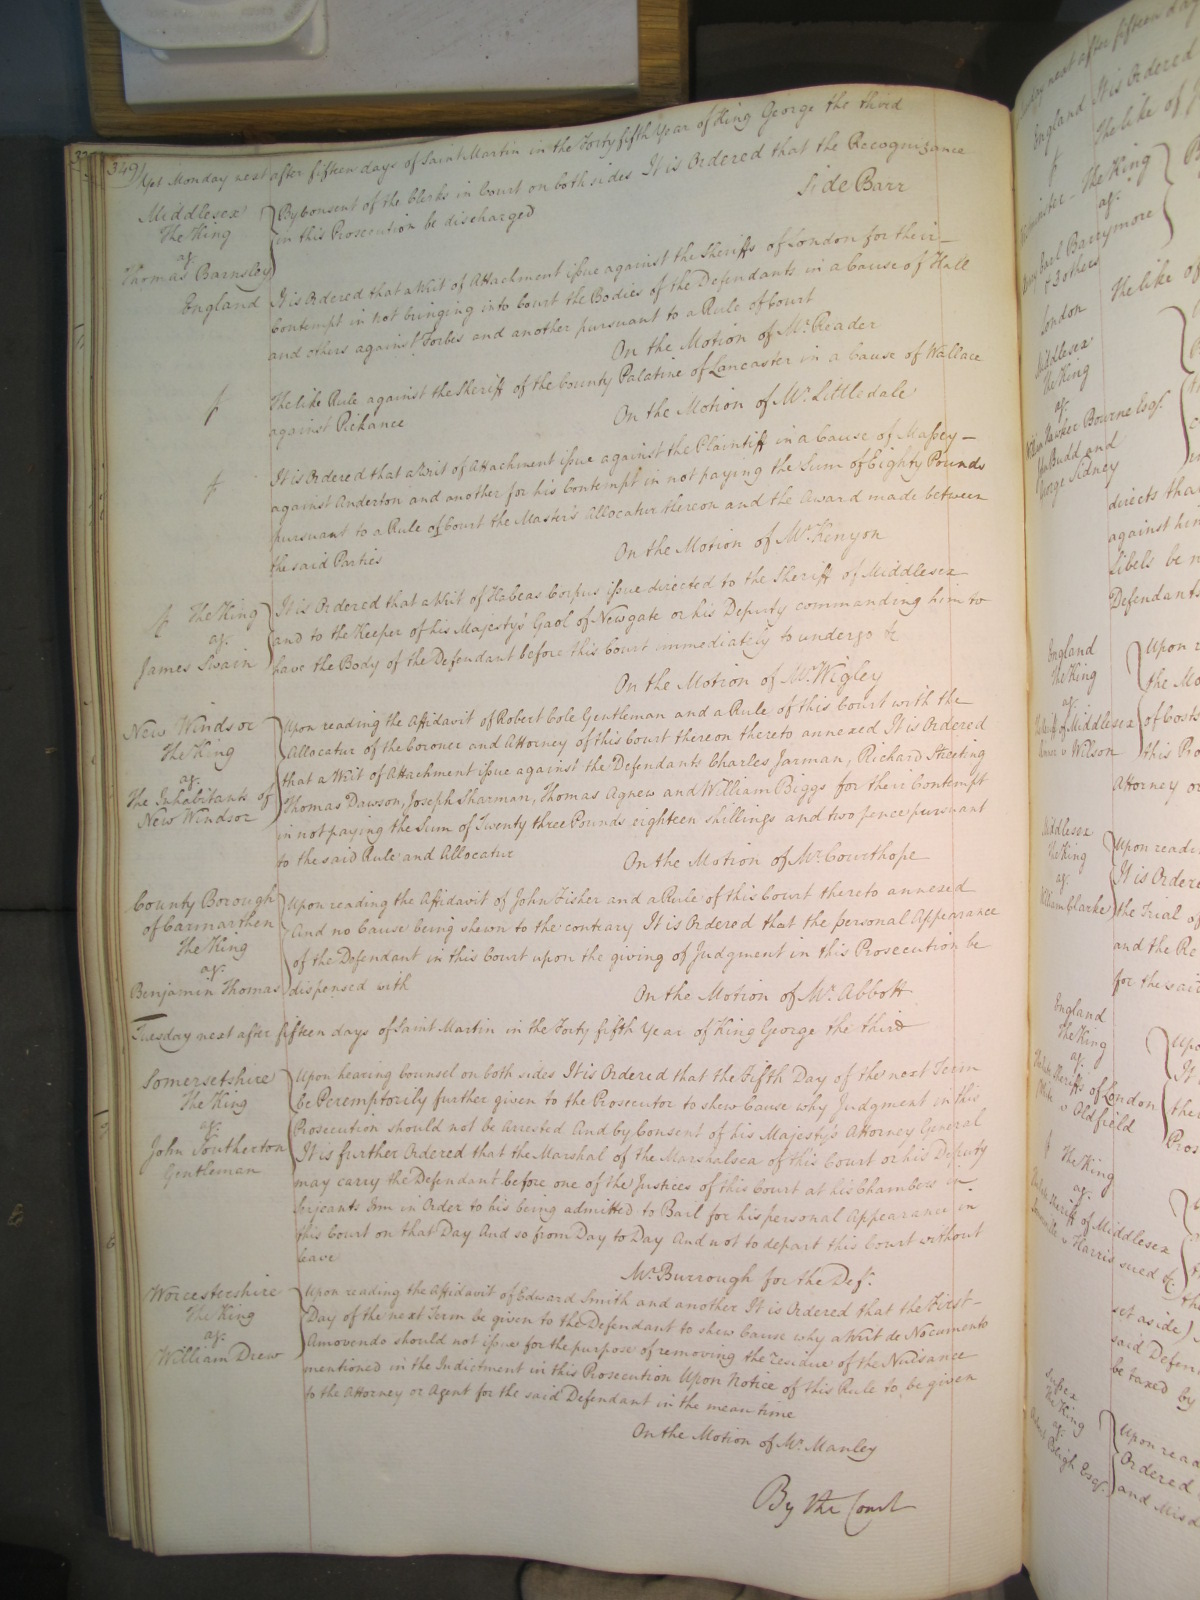 349
Yet Monday next after fifteen days of Saint Martin in the Forty fifth Year of King George the third
Middlesex
The King
agt.
Thomas Barnsley
By Consent of the Clerks in Court on both sides It is Ordered that the Recognizance
in this Prosecution be discharged
Side Barr
England
It is Ordered that a Writ of Attachment issue against the Sheriffs of London for their
Contempt in not bringing into Court the Bodies of the Defendants in a Cause of Hall
and others against Forbes and another pursuant to a Rule of Court
On the Motion of Mr. Reader
The like Rule against the Sheriff of the County Palatine of Lancaster in a Cause of Wallace
against Pickance
On the Motion of Mr. Littledale
It is Ordered that a Writ of Attachment issue against the Plaintiff in a Cause of Massey
against Anderton and another for his Contempt in not paying the Sum of Eighty Pounds
pursuant to a Rule of Court the Master's Allocatur thereon and the Award made between
the said Parties
On the Motion of Mr. Kenyon
The King
agt.
James Swain
It is Ordered that a Writ of Habeas Corpus issue directed to the Sheriff of Middlesex
and to the Keeper of his Majesty's Gaol of Newgate or his Deputy commanding him to
have the Body of the Defendant before this Court immediately to undergo &c
On the Motion of Mr. Wigley
New Windsor
The King
agt.
The Inhabitants of
New Windsor
Upon reading the Affidavit of Robert Cole Gentleman and a Rule of this Court with the
Allocatur of the Coroner and Attorney of this Court thereon thereto annexed It is Ordered
that a Writ of Attachment issue against the Defendants Charles Jarman, Richard Streeting
Thomas Dawson, Joseph Sharman, Thomas Agnew and William Biggs for their Contempt
in not paying the Sum of Twenty three Pounds eighteen shillings and two pence pursuant
to the said Rule and Allocatur
On the Motion of Mr. Courthope
County Borough
of Carmarthen
The King
agt.
Benjamin Thomas
Upon reading the Affidavit of John Fisher and a Rule of this Court thereto annexed
And no Cause being shewn to the contrary It is Ordered that the personal Appearance
of the Defendant in this Court upon the giving of Judgment in this Prosecution be
dispensed with
On the Motion of Mr. Abbott
Tuesday next after fifteen days of Saint Martin in the Forty fifth Year of King George the third
Somersetshire
The King
agt.
John Southerton
Gentleman
Upon hearing Counsel on both sides It is Ordered that the Fifth Day of the next Term
be Peremptorily further given to the Prosecutor to shew Cause why Judgment in this
Prosecution should not be Arrested And by Consent of his Majesty's Attorney General
It is further Ordered that the Marshal of the Marshalsea of this Court or his Deputy
may carry the Defendant before one of the Justices of this Court at his Chambers in
Serjeants Inn in Order to his being admitted to Bail for his personal Appearance in
this Court on that Day And so from Day to Day And not to depart this Court without
leave
Mr. Burrough for the Deft.
Worcestershire
The King
agt.
William Drew
Upon reading the Affidavit of Edward Smith and another It is Ordered that the First
Day of the next Term be given to the Defendant to shew Cause why a Writ de Nocumento
Amovendo should not issue for the purpose of removing the residue of the Nuisance
mentioned in the Indictment in this Prosecution Upon Notice of this Rule to be given
to the Attorney or Agent for the said Defendant in the mean time
On the Motion of Mr. Manley
By the Court
next after fifteen days
England
It is Ordered
The like of
The King
agt.
Earl Barrymore
& 3 others
London
The like of
Middlesex
The King
agt.
Bourne Esqr.
Budd and
George Sidney
directs that
against him
Libels be
Defendants
England
The King
agt.
of Middlesex
v Wilson
Upon
the
of Costs
this Pro
Attorney or
Middlesex
The King
agt.
William Clarke
Upon readi
It is Ordere
the Trial of
and the Re
for the said
England
The King
agt.
Sheriffs of London
v Oldfield
Upo
It
the
Pros
The King
agt.
Sheriff of Middlesex
v Harris sued &c.
set aside
said Defen
be taxed by
Sussex
The King
agt.
Bligh Esqr.
Upon read
Ordered
and Misd